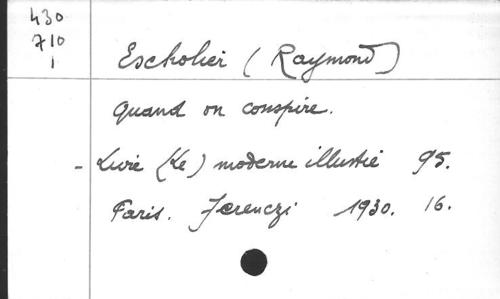 430
710
1
Escholier (Raymond)
Quand on conspire.
- Livre (Le) moderne illustré 95.
Paris. Ferenczi 1930. 16.